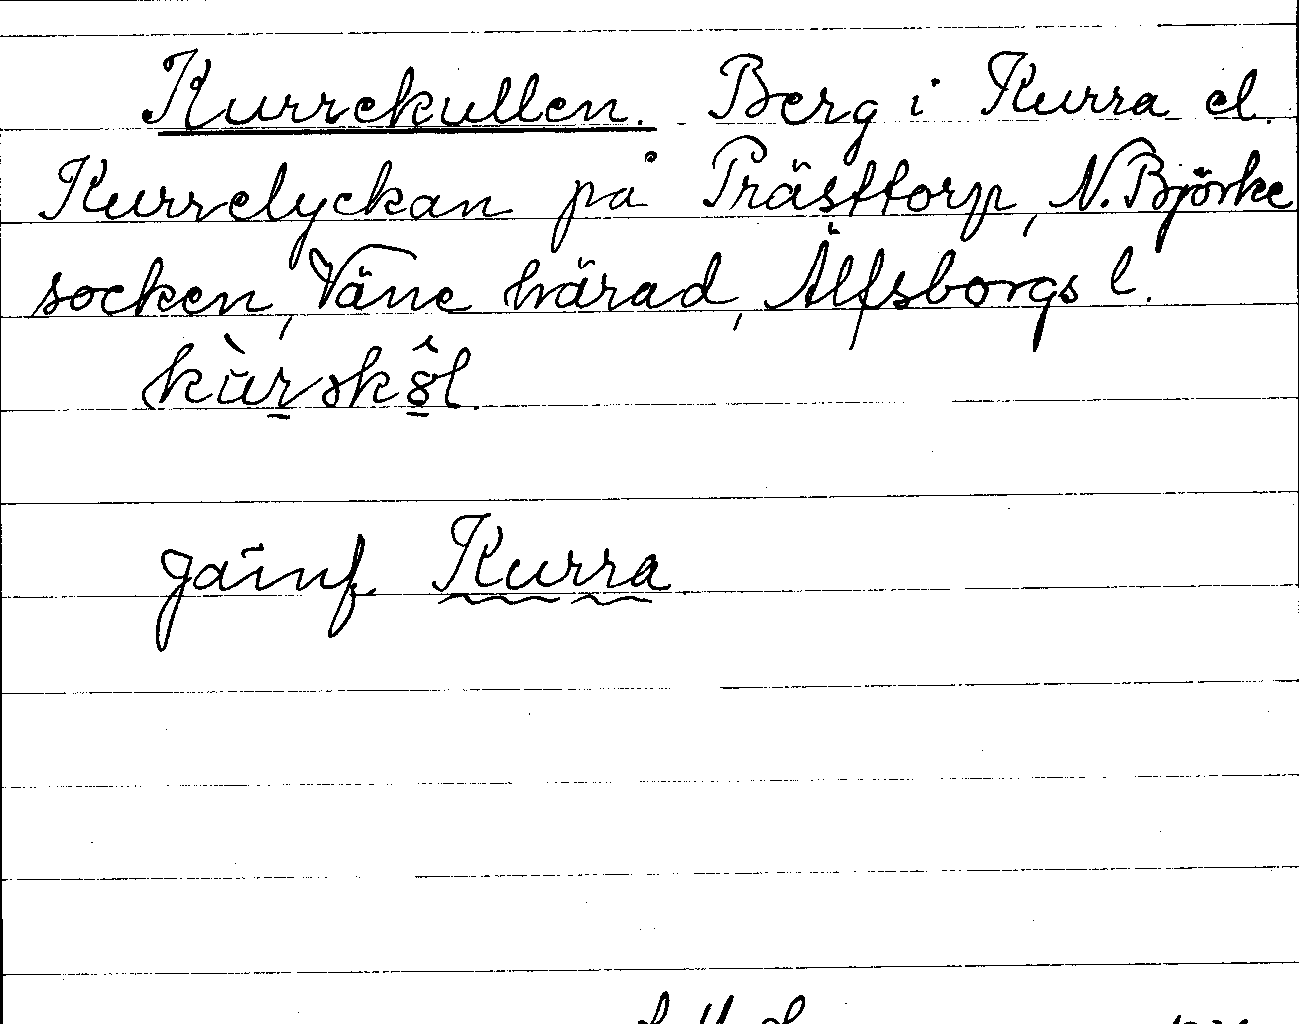 Kurrekullen. Berg i Kurra el.
Kurrelyckan på Prästtorp, N. Björke
socken, Väne härad, Älfsborgs l.
jämf. Kurra